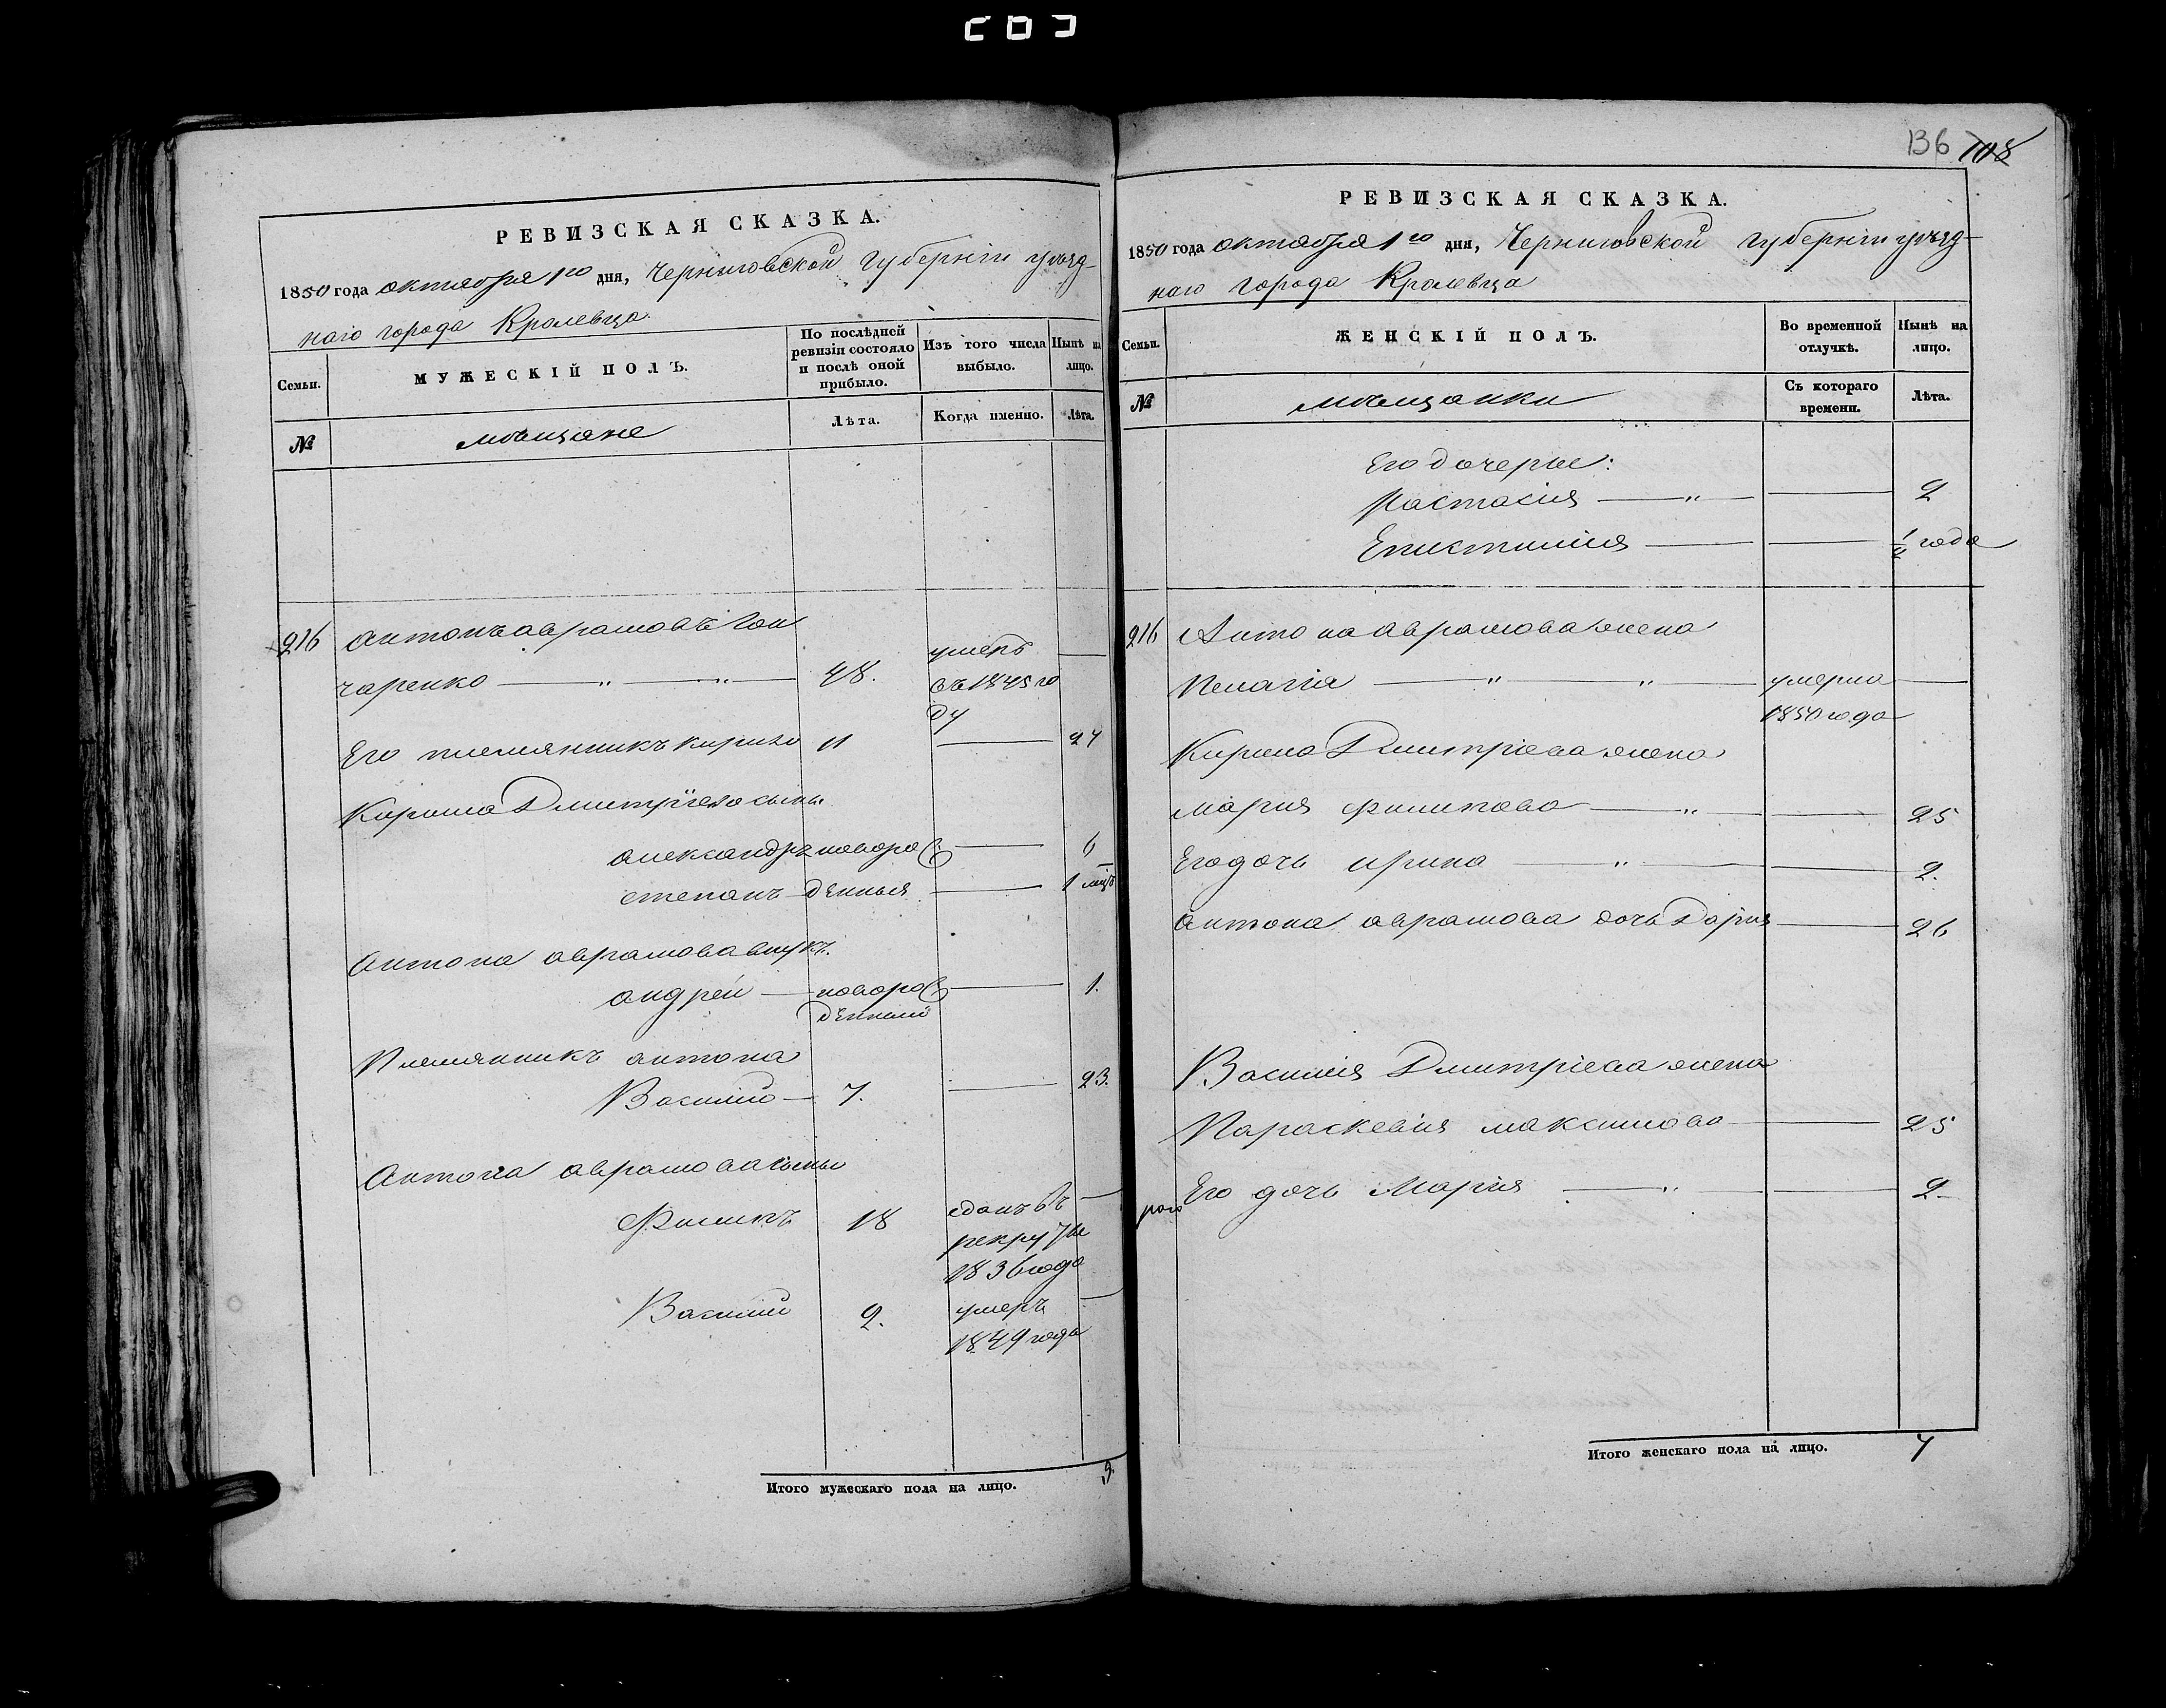 136 708
РЕВИЗСКАЯ СКАЗКА.
1850 года октября 1го дня, Черниговской губерніи уѣзд-
наго города Кролевца.
Семьи.
МУЖЕСКІЙ ПОЛЪ.
По послѣдней ревизіи состояло и послѣ оной прибыло.
Изъ того числа выбыло.
Нынѣ на лицо.
№
мѣщане
Лѣта.
Когда именно.
Лѣта.
216 Антонъ Аврамовъ Гон
чаренко — " — " — 48. умеръ въ 1845 го
ду
Его племянникъ Кирило 11 — 27
Кирила Дмитріева сыны
Александръ новоро — 6
Степанъ — жденныя — 1 мцъ
Антона Аврамова внукъ.
Андрей — новоро — 1.
жденный
Племянникъ Антона
Василий — 7. — 23.
Антона Аврамова сыны
Филипъ 18 сданъ въ
рекруты
1836 года
Василий 2. умеръ
1849 года
Итого мужескаго пола на лицо.
РЕВИЗСКАЯ СКАЗКА.
1850 года октября 1го дня, Черниговской губерніи уѣзд-
наго города Кролевца
Семьи.
ЖЕНСКІЙ ПОЛЪ.
Во временной отлучкѣ.
Нынѣ на лицо.
№
мѣщанки
Съ котораго времени.
Лѣта.
Его дочери:
Настасия — " — — 2
Епистимия — — ½ года
216 Антона Аврамова жена
Пелагія — " — " — умерла —
1850 года
Кирила Дмитріева жена
Мария Филипова — " — — 25
Его дочь Ирина — " — — 2.
Антона Аврамова дочь Дария — 26
Василия Дмитріева жена
Параскевия Максимова — — 25
Его дочь Мария — " — — 2.
Итого женскаго пола на лицо. 7